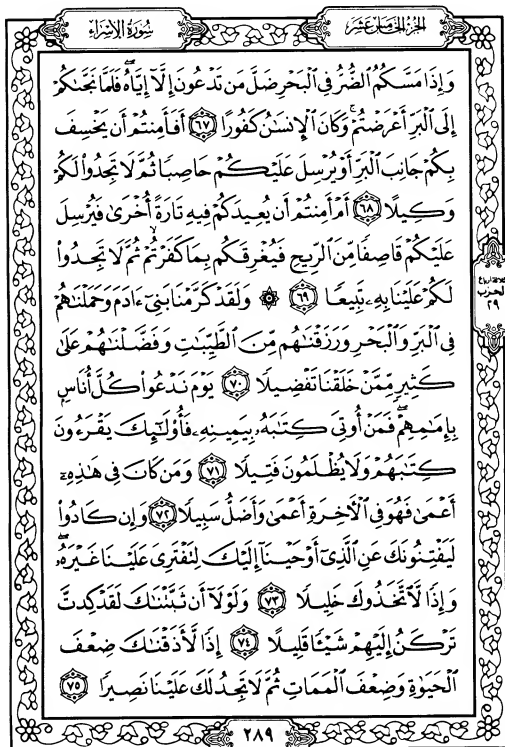 الجزء الخامس عشر
سورة الإسراء
وَإِذَا مَسَّكُمُ ٱلضُّرُّ فِي ٱلْبَحْرِ ضَلَّ مَن تَدْعُونَ إِلَّآ إِيَّاهُ ۖ فَلَمَّا نَجَّىٰكُمْ
إِلَى ٱلْبَرِّ أَعْرَضْتُمْ ۚ وَكَانَ ٱلْإِنسَٰنُ كَفُورًا ٦٧ أَفَأَمِنتُمْ أَن يَخْسِفَ
بِكُمْ جَانِبَ ٱلْبَرِّ أَوْ يُرْسِلَ عَلَيْكُمْ حَاصِبًا ثُمَّ لَا تَجِدُوا۟ لَكُمْ
وَكِيلًا ٦٨ أَمْ أَمِنتُمْ أَن يُعِيدَكُمْ فِيهِ تَارَةً أُخْرَىٰ فَيُرْسِلَ
عَلَيْكُمْ قَاصِفًا مِّنَ ٱلرِّيحِ فَيُغْرِقَكُم بِمَا كَفَرْتُمْ ۙ ثُمَّ لَا تَجِدُوا۟
لَكُمْ عَلَيْنَا بِهِۦ تَبِيعًا ٦٩ ۞ وَلَقَدْ كَرَّمْنَا بَنِىٓ ءَادَمَ وَحَمَلْنَٰهُمْ
فِى ٱلْبَرِّ وَٱلْبَحْرِ وَرَزَقْنَٰهُم مِّنَ ٱلطَّيِّبَٰتِ وَفَضَّلْنَٰهُمْ عَلَىٰ
كَثِيرٍ مِّمَّنْ خَلَقْنَا تَفْضِيلًا ٧٠ يَوْمَ نَدْعُوا۟ كُلَّ أُنَاسٍۭ
بِإِمَٰمِهِمْ ۖ فَمَنْ أُوتِىَ كِتَٰبَهُۥ بِيَمِينِهِۦ فَأُو۟لَٰٓئِكَ يَقْرَءُونَ
كِتَٰبَهُمْ وَلَا يُظْلَمُونَ فَتِيلًا ٧١ وَمَن كَانَ فِى هَٰذِهِۦٓ
أَعْمَىٰ فَهُوَ فِى ٱلْءَاخِرَةِ أَعْمَىٰ وَأَضَلُّ سَبِيلًا ٧٢ وَإِن كَادُوا۟
لَيَفْتِنُونَكَ عَنِ ٱلَّذِىٓ أَوْحَيْنَآ إِلَيْكَ لِتَفْتَرِىَ عَلَيْنَا غَيْرَهُۥ ۖ
وَإِذًا لَّٱتَّخَذُوكَ خَلِيلًا ٧٣ وَلَوْلَآ أَن ثَبَّتْنَٰكَ لَقَدْ كِدتَّ
تَرْكَنُ إِلَيْهِمْ شَيْـًٔا قَلِيلًا ٧٤ إِذًا لَّأَذَقْنَٰكَ ضِعْفَ
ٱلْحَيَوٰةِ وَضِعْفَ ٱلْمَمَاتِ ثُمَّ لَا تَجِدُ لَكَ عَلَيْنَا نَصِيرًا ٧٥
ثلاثة أرباع
الحزب
٢٩
٢٨٩